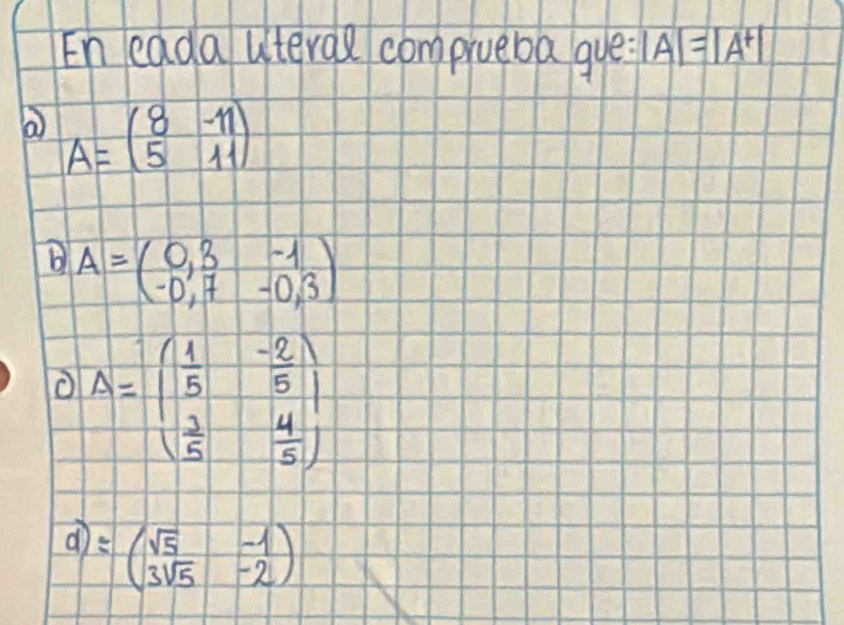 En cada literal comprueba que: |A| = |A^t|
a) A = (8 -11
5 11)
b) A = (0,3 -1
-0,7 -0,3)
c) A = (1/5 -2/5
3/5 4/5)
d) = (√5 -1
3√5 -2)